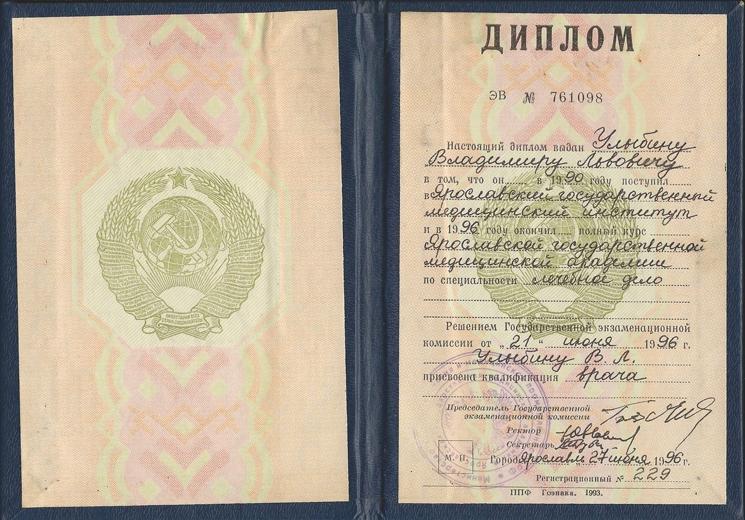 ДИПЛОМ
ЭВ № 761098
Настоящий диплом выдан Улыбину
Владимиру Львовичу
в том, что он в 1990 году поступил
в Ярославский государственный
медицинский институт
и в 1996 году окончил полный курс
Ярославской государственной
медицинской академии
по специальности лечебное дело
Решением Государственной экзаменационной
комиссии от „21" июня 1996 г.
Улыбину В. Л.
присвоена квалификация врача
Председатель Государственной
экзаменационной комиссии
Ректор
Секретарь
М. П. Город Ярославль, 27 июня 1996 г.
Регистрационный № 229
ППФ Гознака. 1993.